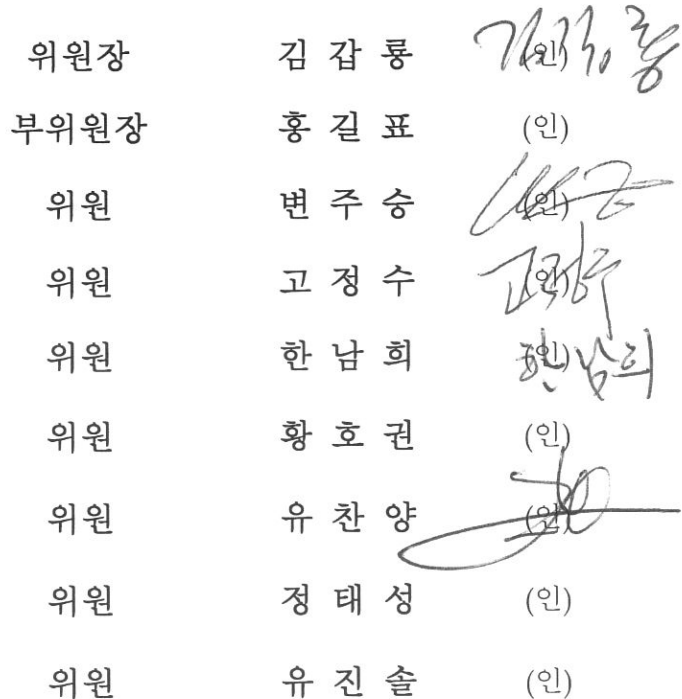 위원장 김 갑 룡 (인) 김갑룡
부위원장 홍 길 표 (인)
위원 변 주 승 (인)
위원 고 정 수 (인) 고정수
위원 한 남 희 (인) 한남희
위원 황 호 권 (인)
위원 유 찬 양 (인)
위원 정 태 성 (인)
위원 유 진 솔 (인)